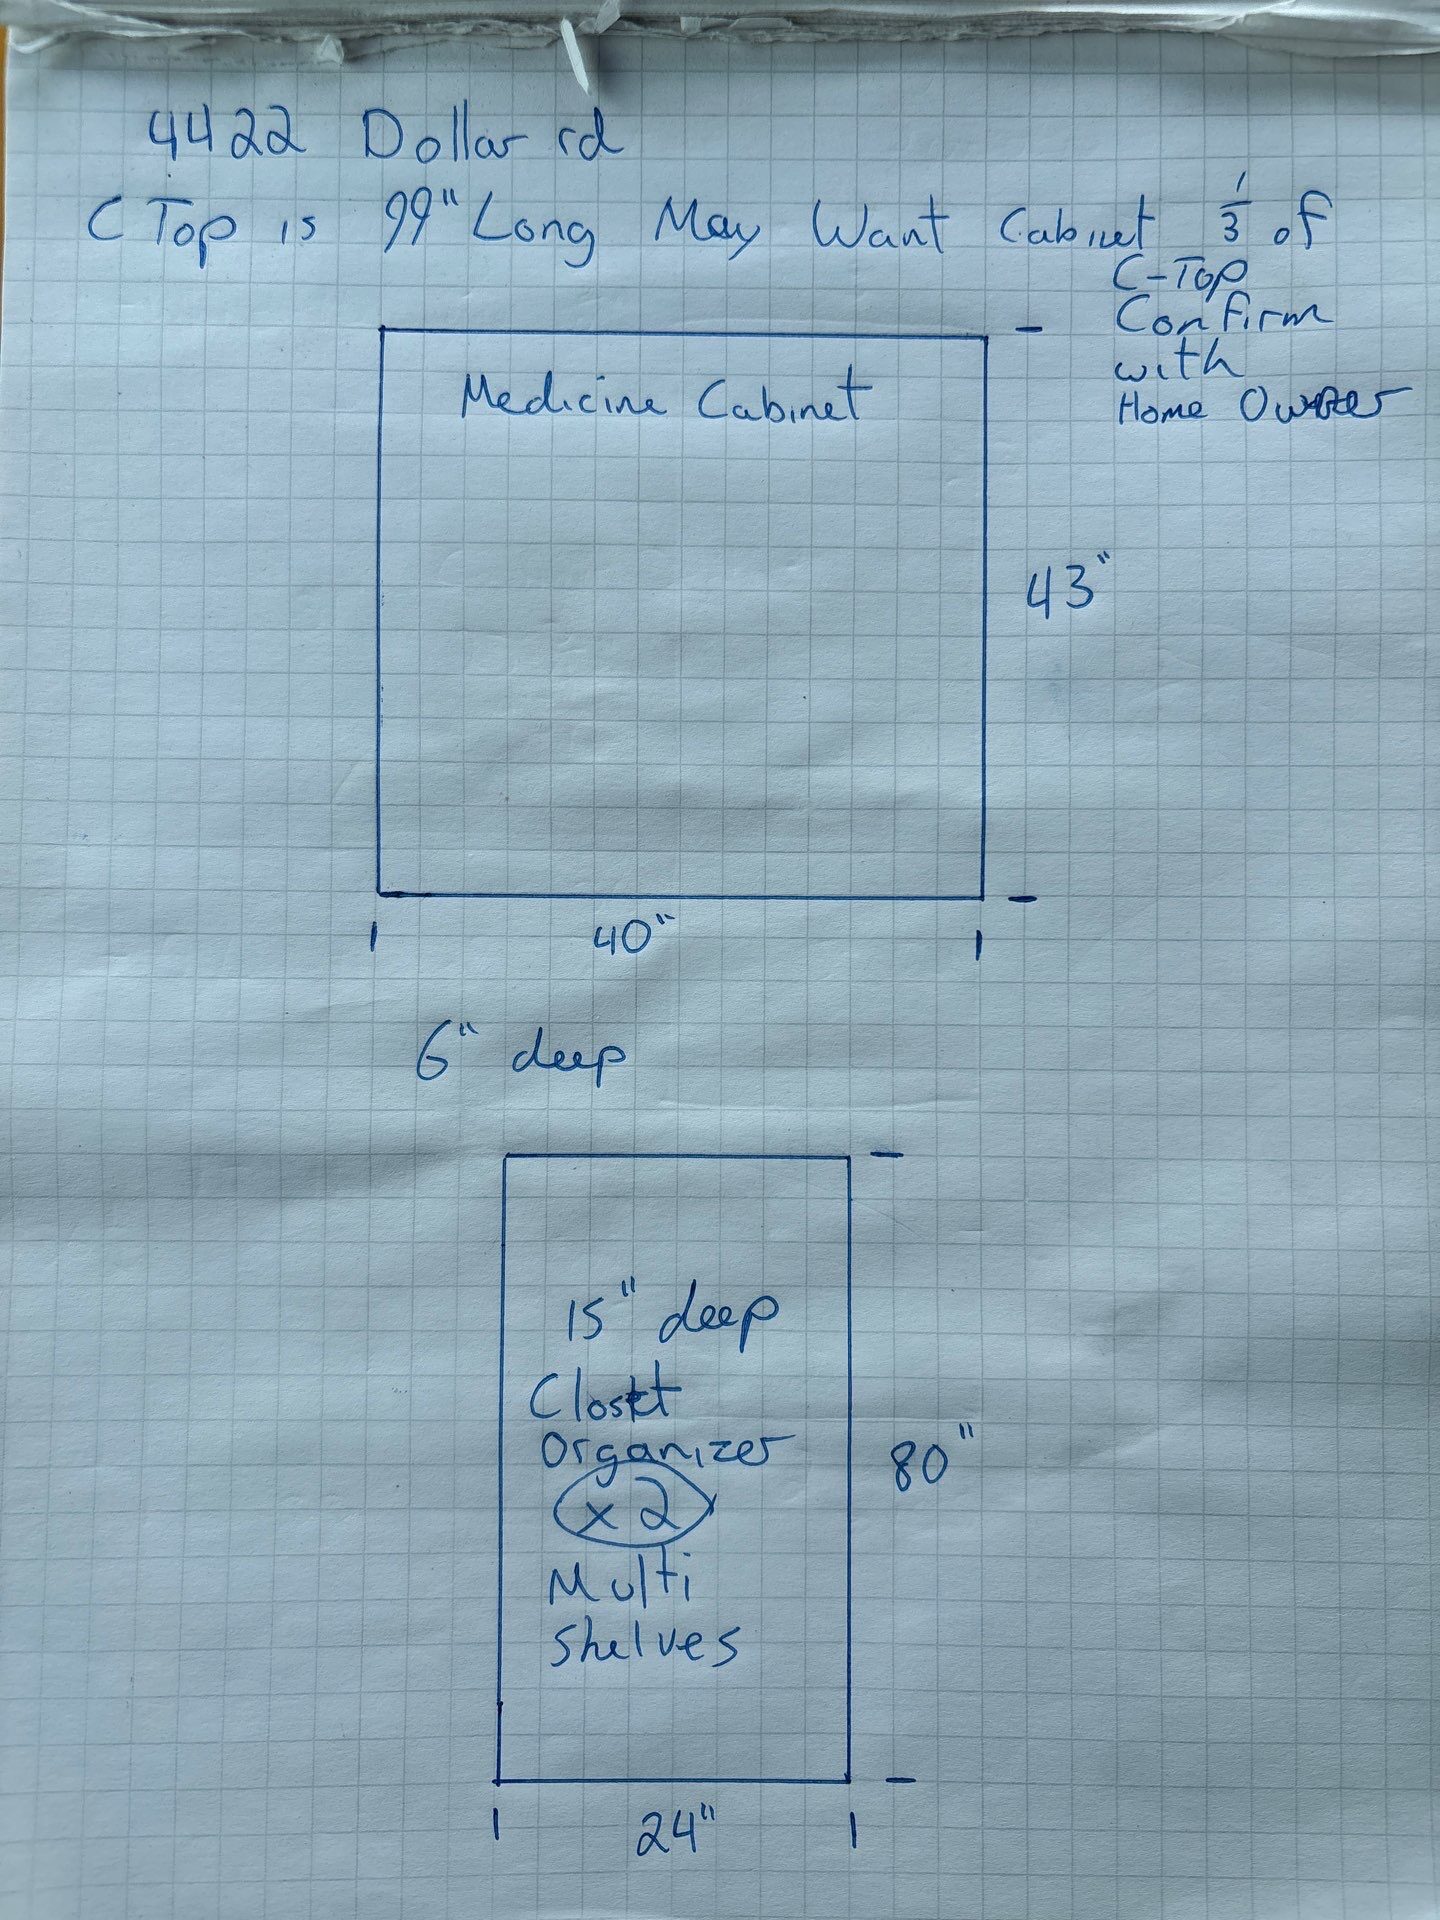 4422 Dollar rd
C Top is 99" Long May Want Cabinet 1/3 of
C-Top
Confirm
with
Home Owner
Medicine Cabinet
43"
40"
6" deep
15" deep
Closet
Organizer
x2
Multi
Shelves
80"
24"